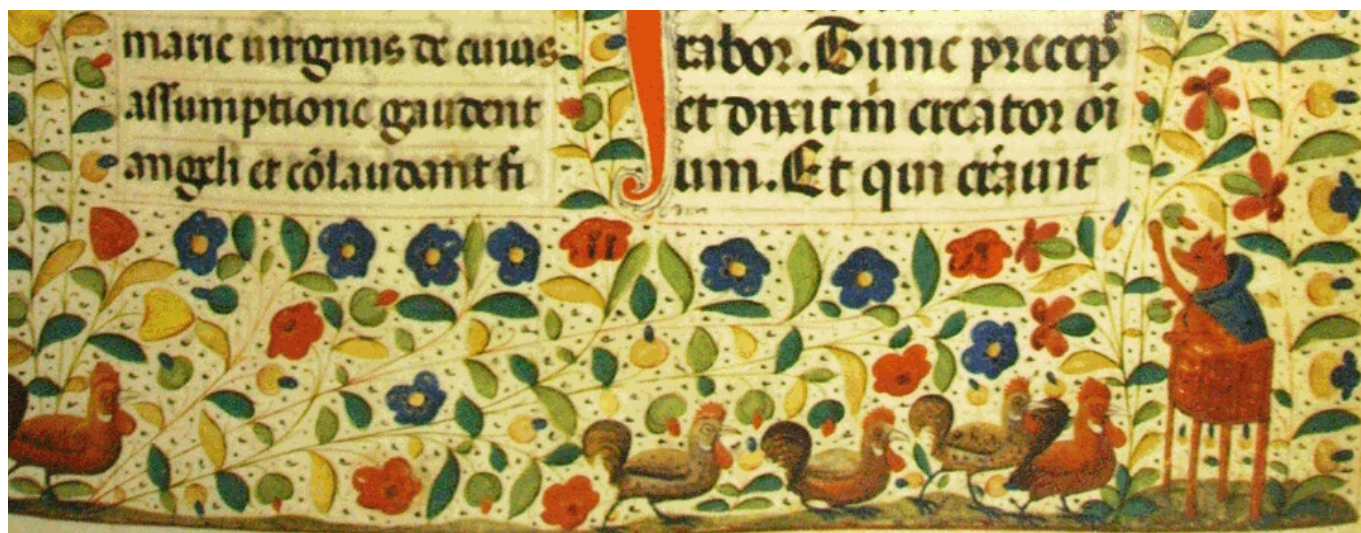 marie virginis de cuius
assumptione gaudent
angeli et cōlaudant fi
rabor. Tunc precep̄
et dixit m̄ creator oī
um. Et qui creauit